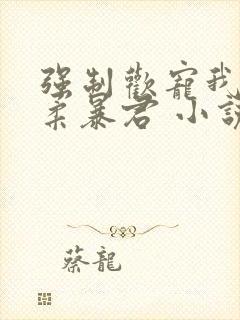 强制歡寵我
柔暴君 小說
蔡龍